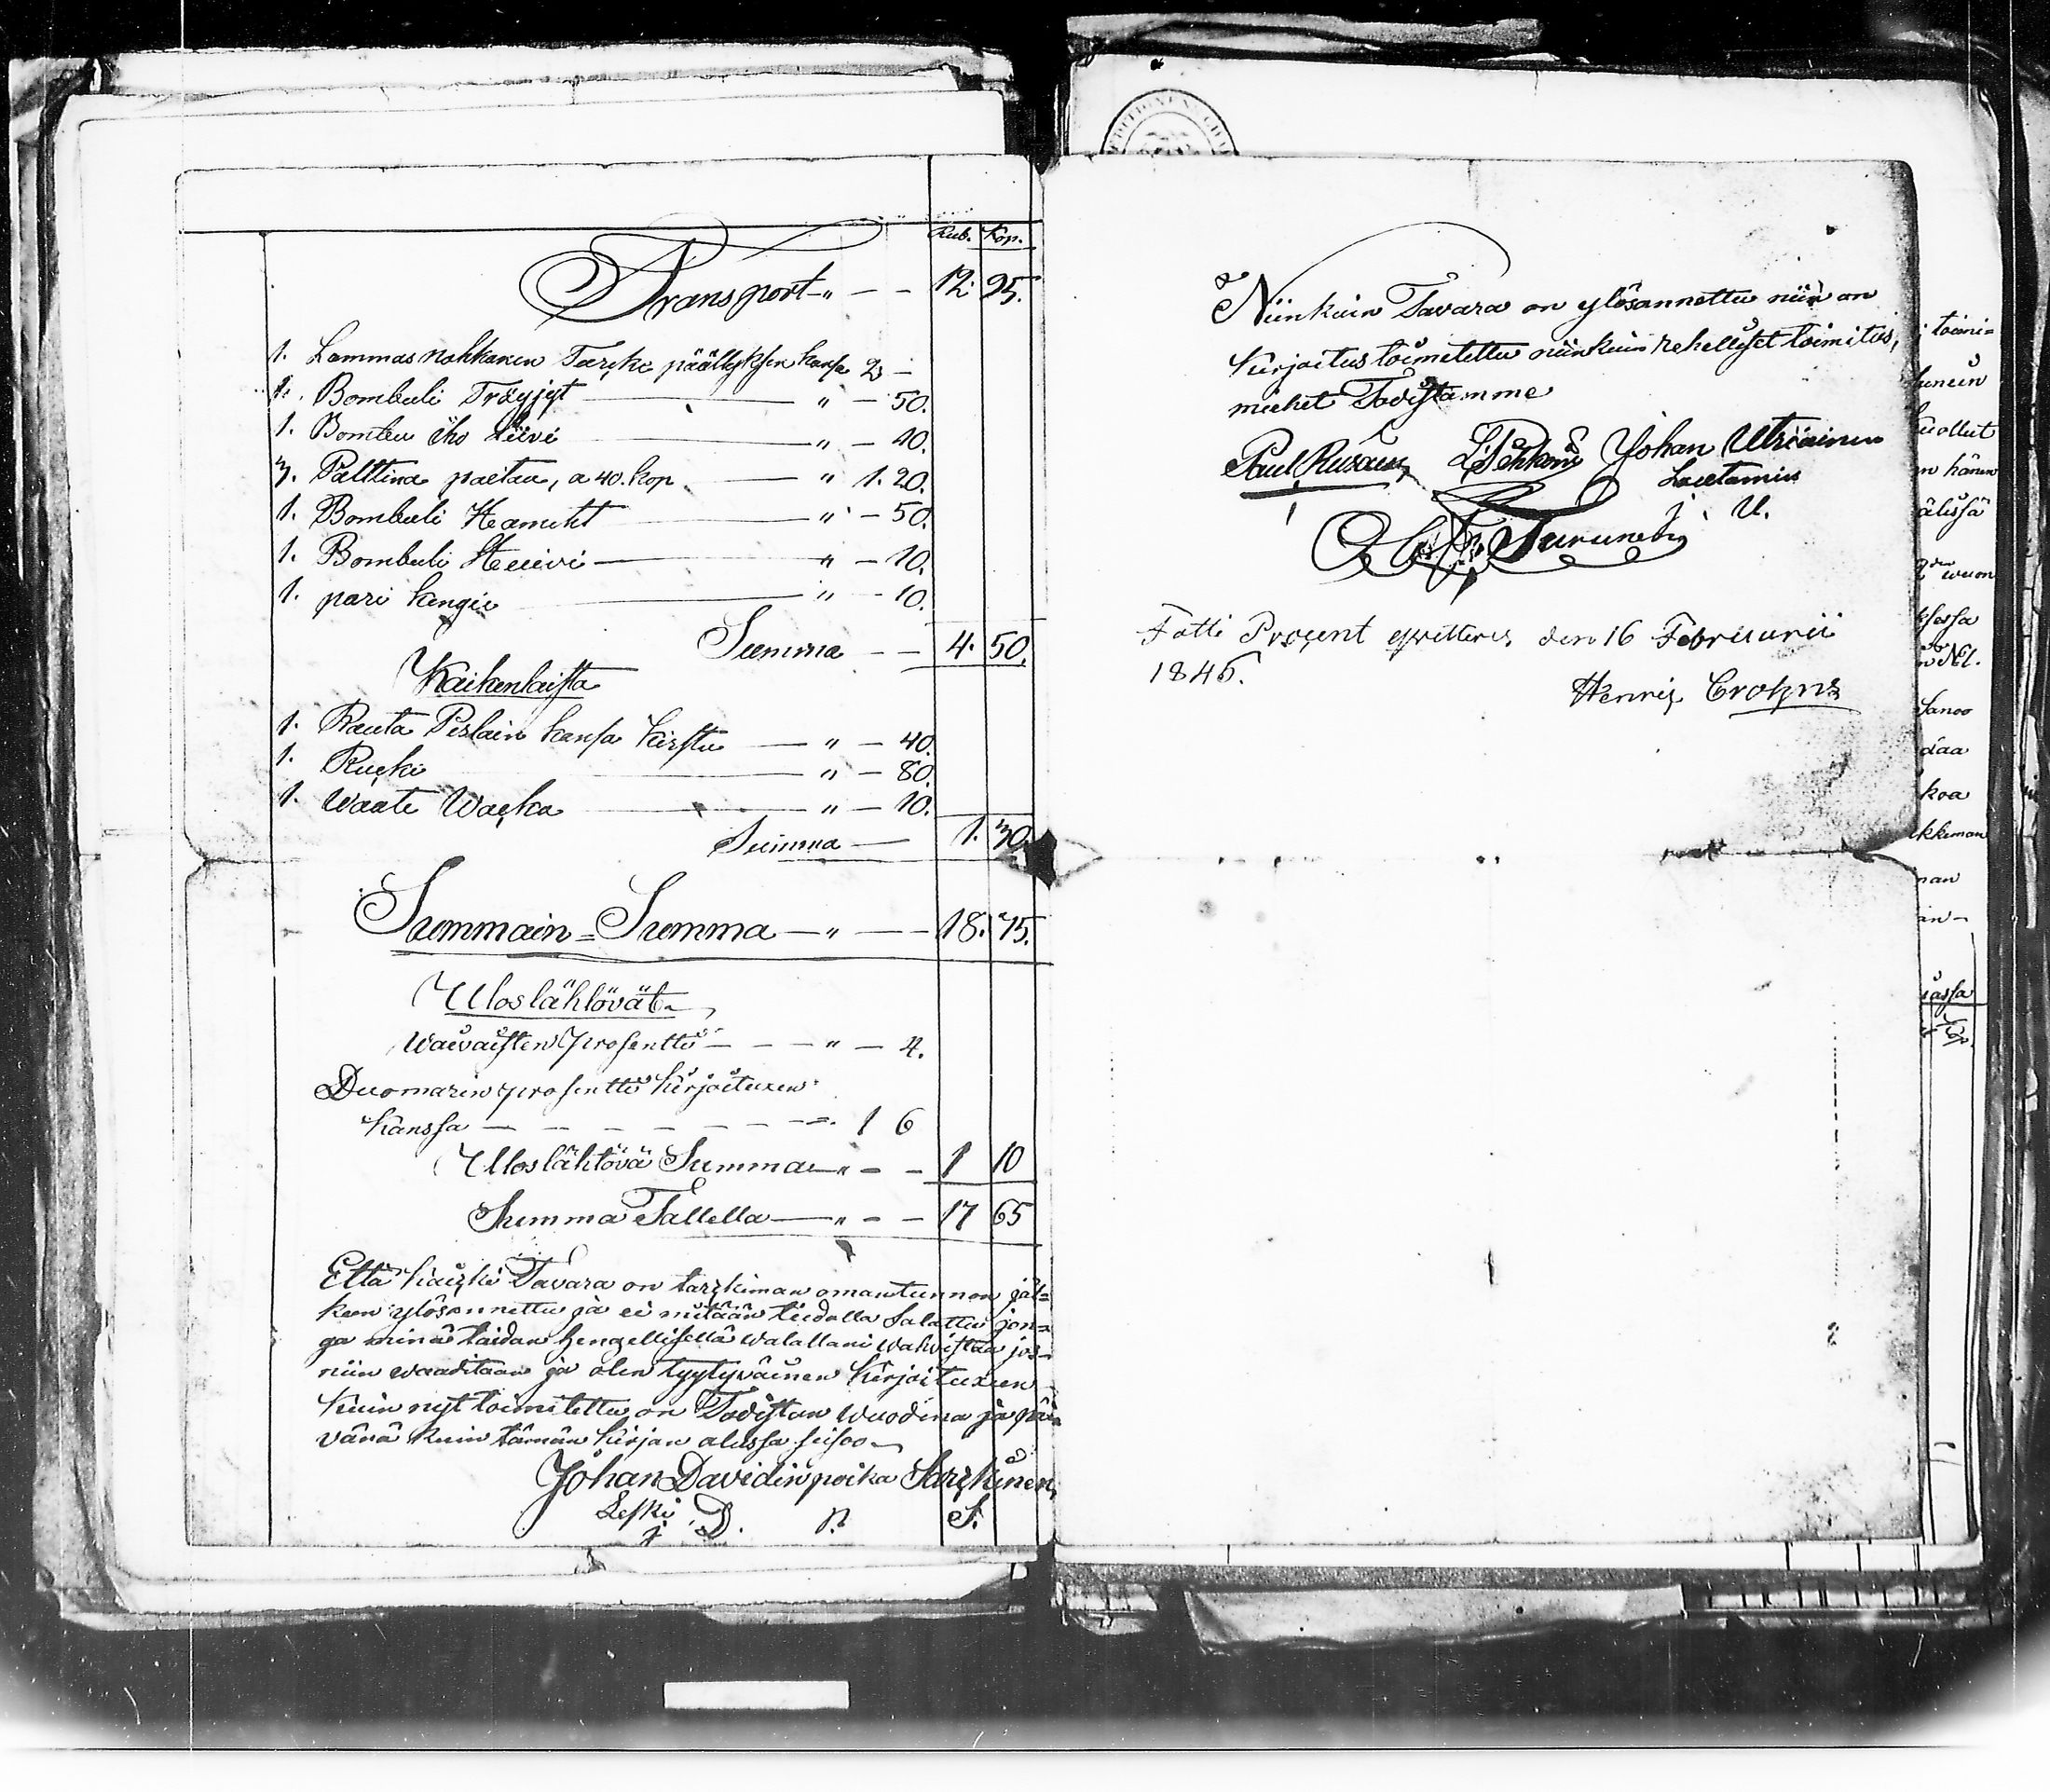 Rub. Kop.
Transport „ — — 12. 95.
1. Lammasnahkanen Turcki päällyksen kansa 2 —
1. Bombuli Tröyjyt — „ — 50.
1. Bombu iho Liivi — „ — 40.
3. Palttina paitaa, a 40. kop. — „ 1. 20.
1. Bombuli Hamiht — „ — 50.
1. Bombuli Huivi — „ — 10.
1. pari kengie — „ — 10.
Summa — — 4. 50.
Kaikenlaista
1. Rauta Pislain kansa kirstu — „ — 40.
1. Rucki — „ — 80.
1. Waate Wacka — „ — 10.
Summa — 1. 30.
Summain = Summa — „ — 18. 75.
Uloslähtövät
Waivaisten prosentti — — — „ — 4.
Duomarin prosentti kirjoituxen
kanssa — — — — — — — = 1 6
Uloslähtövä Summa „ — — 1 10
Summa Tallella — „ — — 17 65
Että kaicki Tavara on tarckiman omantunnon jäl=
keen ylösannettu ja ei mitään tiedolla Salattu jon=
ga minä taidan hengellisellä walallani wahvistaa jos
niin waaditaan ja olen tyytyväinen kirjoituxeen
kuin nyt toimitettu on Todistan wuodina ja päi
vänä kuin tämän kirjan alussa seisoo
Johan Davidinpoika Sarckinen,
Leski
j. D. p. S.
Niinkuin Tavara on ylösannettu niin on
kirjoitus toimitettu niinkuin rehelliset toimitus,
miehet Todistamme
Paul Rusanen Johan Utriainen
Lautamies
j. U.
Turunen
Fatti Procent qvitteras den 16 Februarii
1846.
Henric Crohns